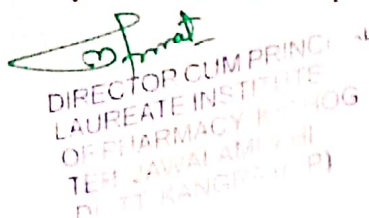 DIRECTOR CUM PRINCIPAL
LAUREATE INSTITUTE
OF PHARMACY KATHOG
TEH. JAWALAMUKHI
DISTT. KANGRA (H.P)